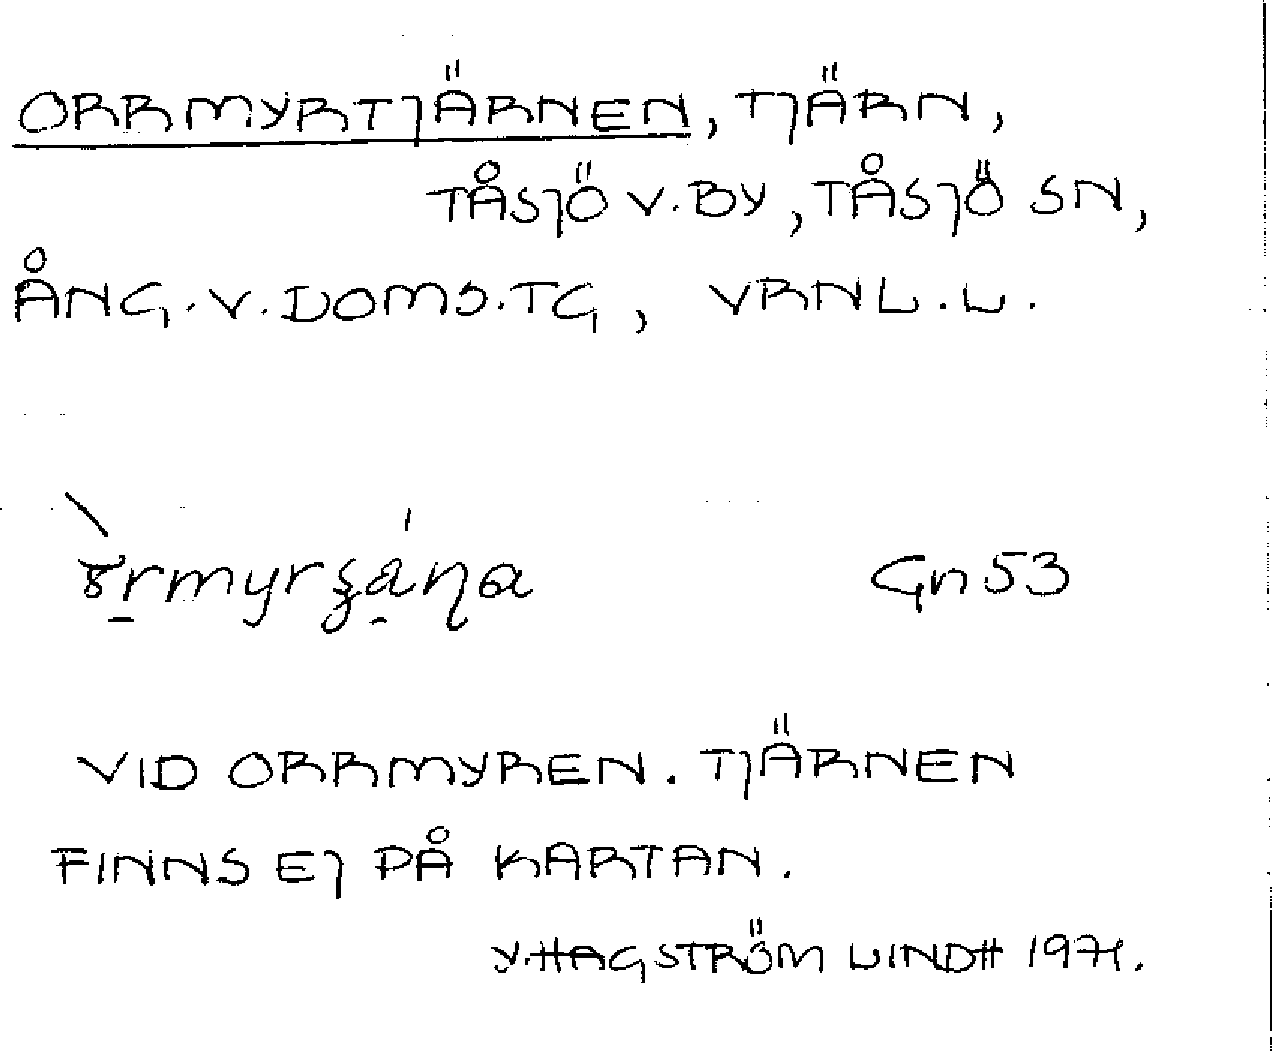 ORRMYRTJÄRNEN, TJÄRN,
TÅSJÖ V. BY, TÅSJÖ SN,
ÅNG. V. DOMS. TG, VRNL. L.
Gn 53
VID ORRMYREN. TJÄRNEN
FINNS EJ PÅ KARTAN.
Y. HAGSTRÖM LINDH 1971.